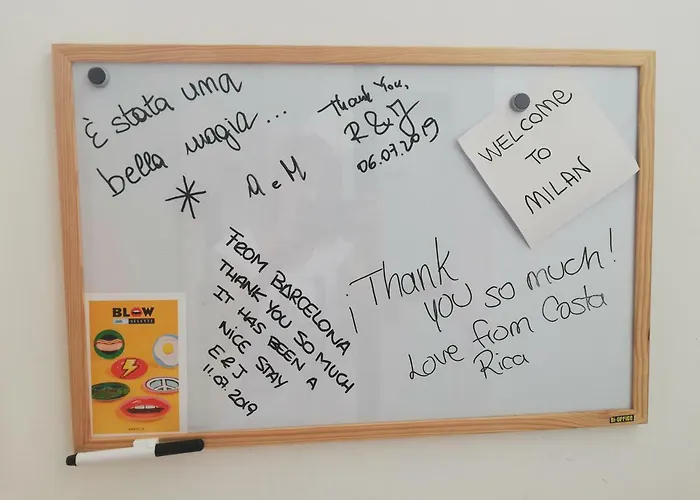 È stata una
bella magia...
A e M
Thank You,
R & J
06.07.2019
WELCOME
TO
MILAN
FROM BARCELONA
THANK YOU SO MUCH
IT HAS BEEN A
NICE STAY
E & J
11.07.2019
¡Thank
you so much!
Love from Costa
Rica
BLOW
BI-OFFICE